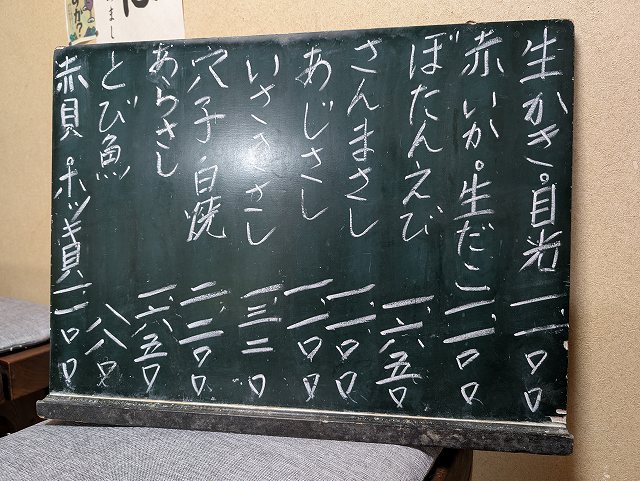 生かき。目光 一、一〇〇
赤いか。生だこ 一、一〇〇
ぼたんえび 一、六五〇
さんまさし 一、一〇〇
あじさし 一、二〇〇
いさきさし 一、三二〇
穴子白焼 二、二〇〇
あらさし 一、六五〇
とび魚 八八〇
赤貝。ホッキ貝 一、一〇〇